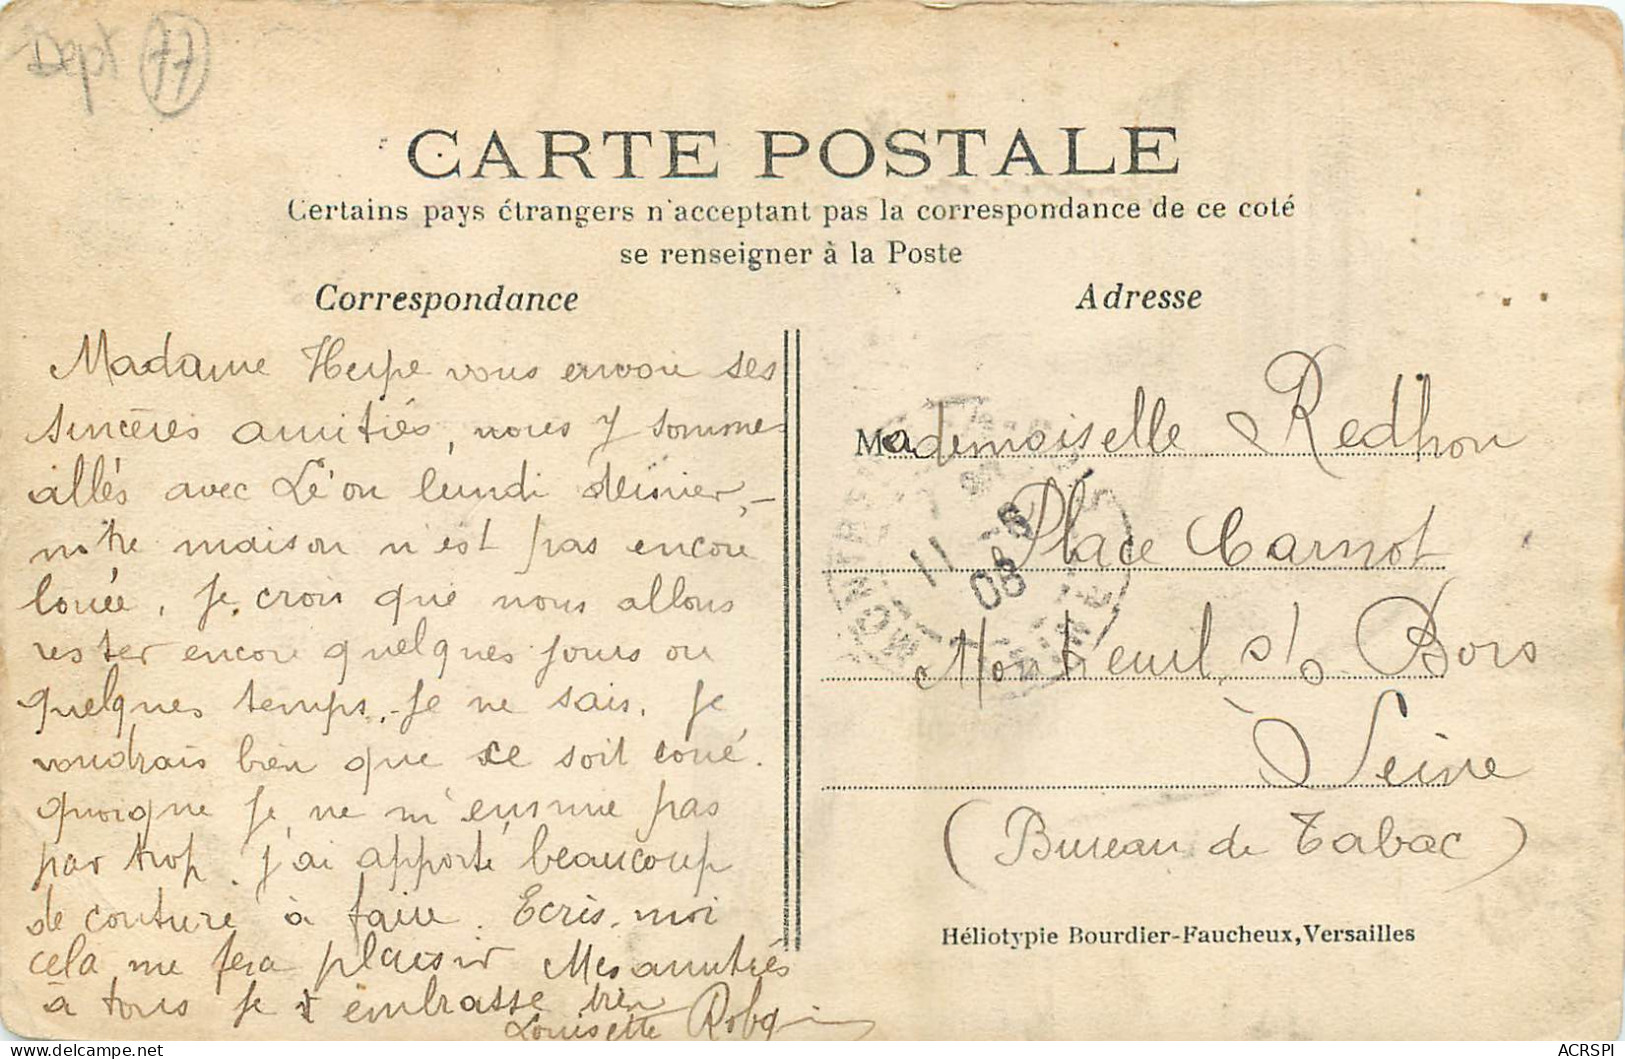 Dept 77
CARTE POSTALE
Certains pays étrangers n'acceptant pas la correspondance de ce coté
se renseigner à la Poste
Correspondance
Madame vous envoie ses
sincères amitiés, nous y sommes
allés avec Léon lundi dernier,
notre maison n'est pas encore
louée, je crois que nous allons
rester encore quelques jours ou
quelques temps, je ne sais. Je
voudrais bien que ce soit loué.
quoique je ne m'ennuie pas
par trop, j'ai apporté beaucoup
de couture à faire. Ecris-moi
cela me fera plaisir Mes amitiés
à tous je t'embrasse bien
Louisette
Adresse
Mademoiselle Redhon
Place Carnot
Montreuil s/s Bois
Seine
(Bureau de Tabac)
11 -5
08
Héliotypie Bourdier-Faucheux, Versailles
ACRSPI